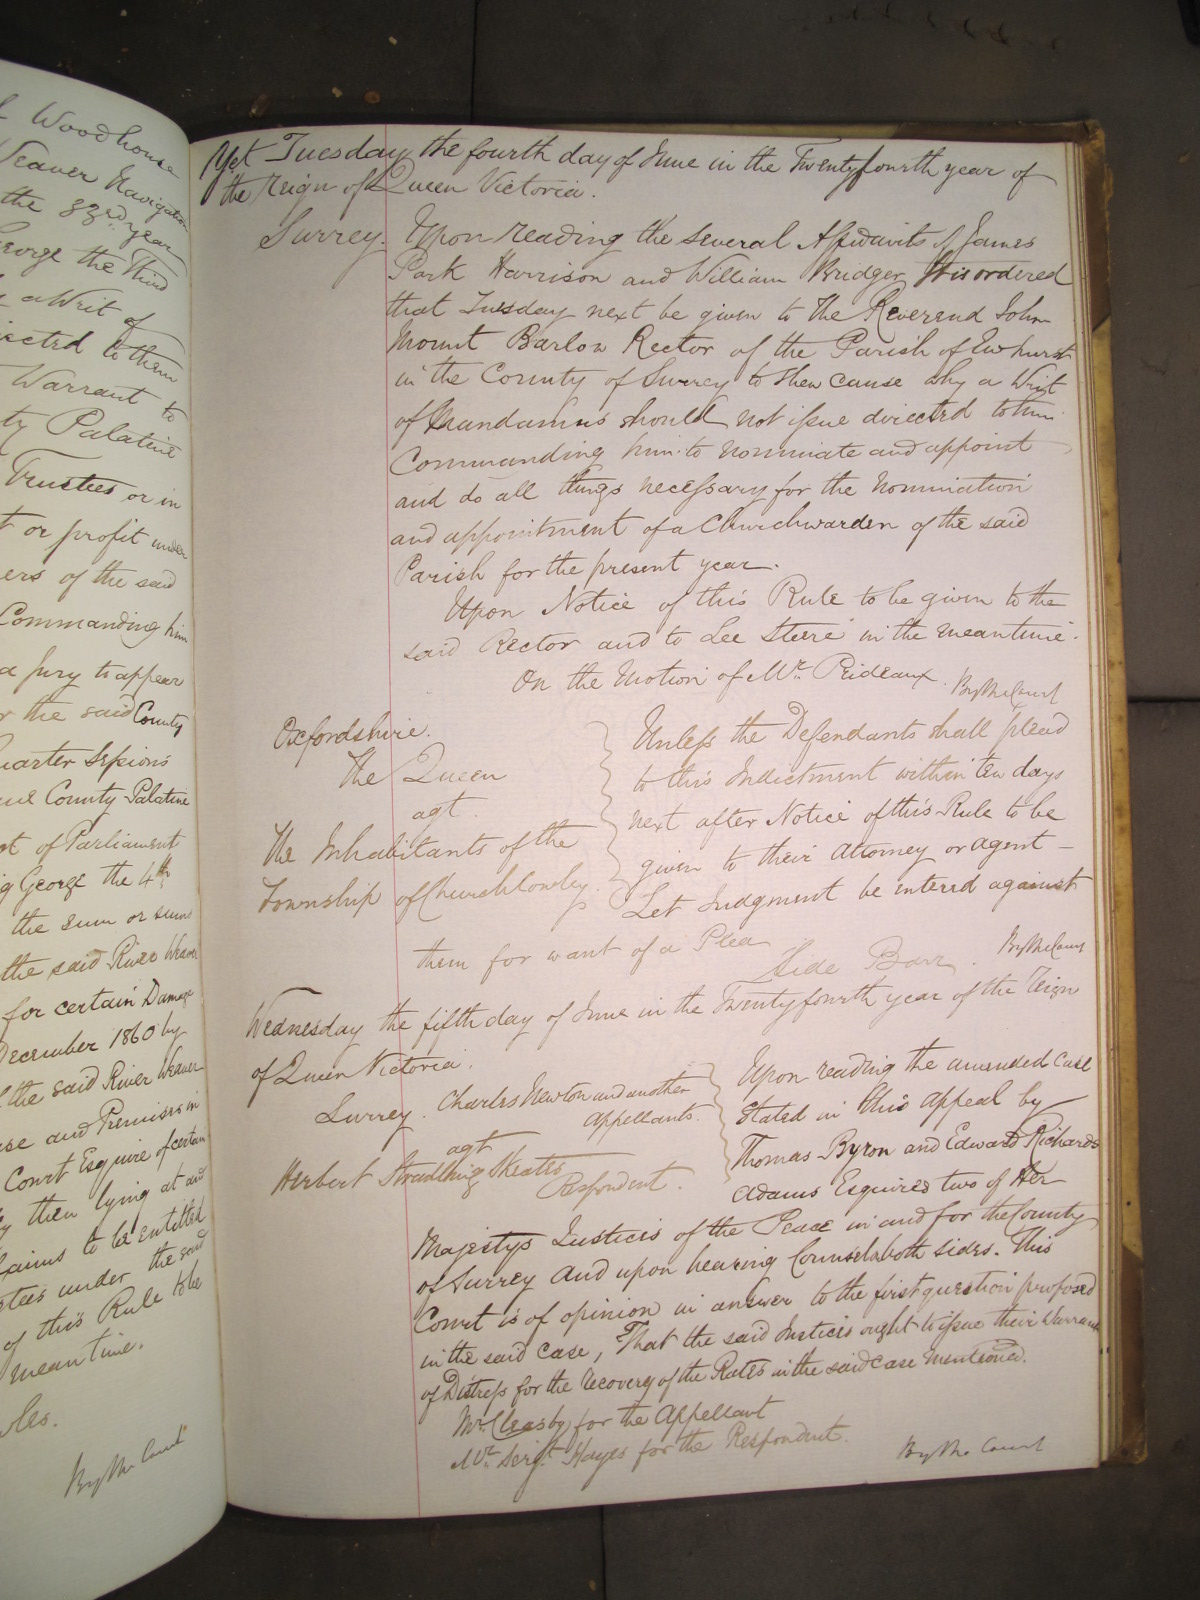 f Woodhouse
Weaver Navigation
the 33rd year
George the Third
y a Writ of
irected to them
Warrant to
ty Palatine
Trustees or in
t or profit under
ers of the said
Commanding him
a Jury to appear
r the said County
uarter Sessions
County Palatine
of Parliament
g George the 4th
the sum or sums
the said River Weaver
for certain Damage
December 1860 by
the said River Weaver
and Premises in
Court Esquire of certain
then lying at and
Claims to be entitled
under the said
of this Rule to be
meantime.
By the Court
Yet Tuesday the fourth day of June in the Twentyfourth year of
the reign of Queen Victoria.
Surrey. Upon reading the several Affidavits of James
Park Harrison and William Bridger It is ordered
that Tuesday next be given to the Reverend John
Mount Barlow Rector of the Parish of Ewhurst
in the County of Surrey to shew cause why a Writ
of Mandamus should not issue directed to him
Commanding him to nominate and appoint
and do all things necessary for the nomination
and appointment of a Churchwarden of the said
Parish for the present year.
Upon Notice of this Rule to be given to the
said Rector and to Lee Steere in the meantime.
On the Motion of Mr. Prideaux. By the Court
Oxfordshire.
The Queen
agt.
The Inhabitants of the
Township of Church Cowley.
Unless the Defendants shall plead
to this Indictment within ten days
next after Notice of this Rule to be
given to their Attorney or agent –
Let Judgment be entered against
them for want of a Plea
Side Barr. By the Court
Wednesday the fifth day of June in the Twentyfourth year of the Reign
of Queen Victoria.
Surrey. Charles Newton and another
Appellants.
agt
Herbert Stradling Skeats
Respondent.
Upon reading the amended Case
Stated in this Appeal by
Thomas Byron and Edward Richards
Adams Esquires two of Her
Majestys Justices of the Peace in and for the County
of Surrey And upon hearing Counsel on both sides. This
Court is of opinion in answer to the first question proposed
in the said Case, That the said Justices ought to issue their Warrant
of Distress for the recovery of the Rates in the said Case mentioned.
Mr. Cleasby for the Appellant
Mr. Serjt. Hayes for the Respondent.
By the Court